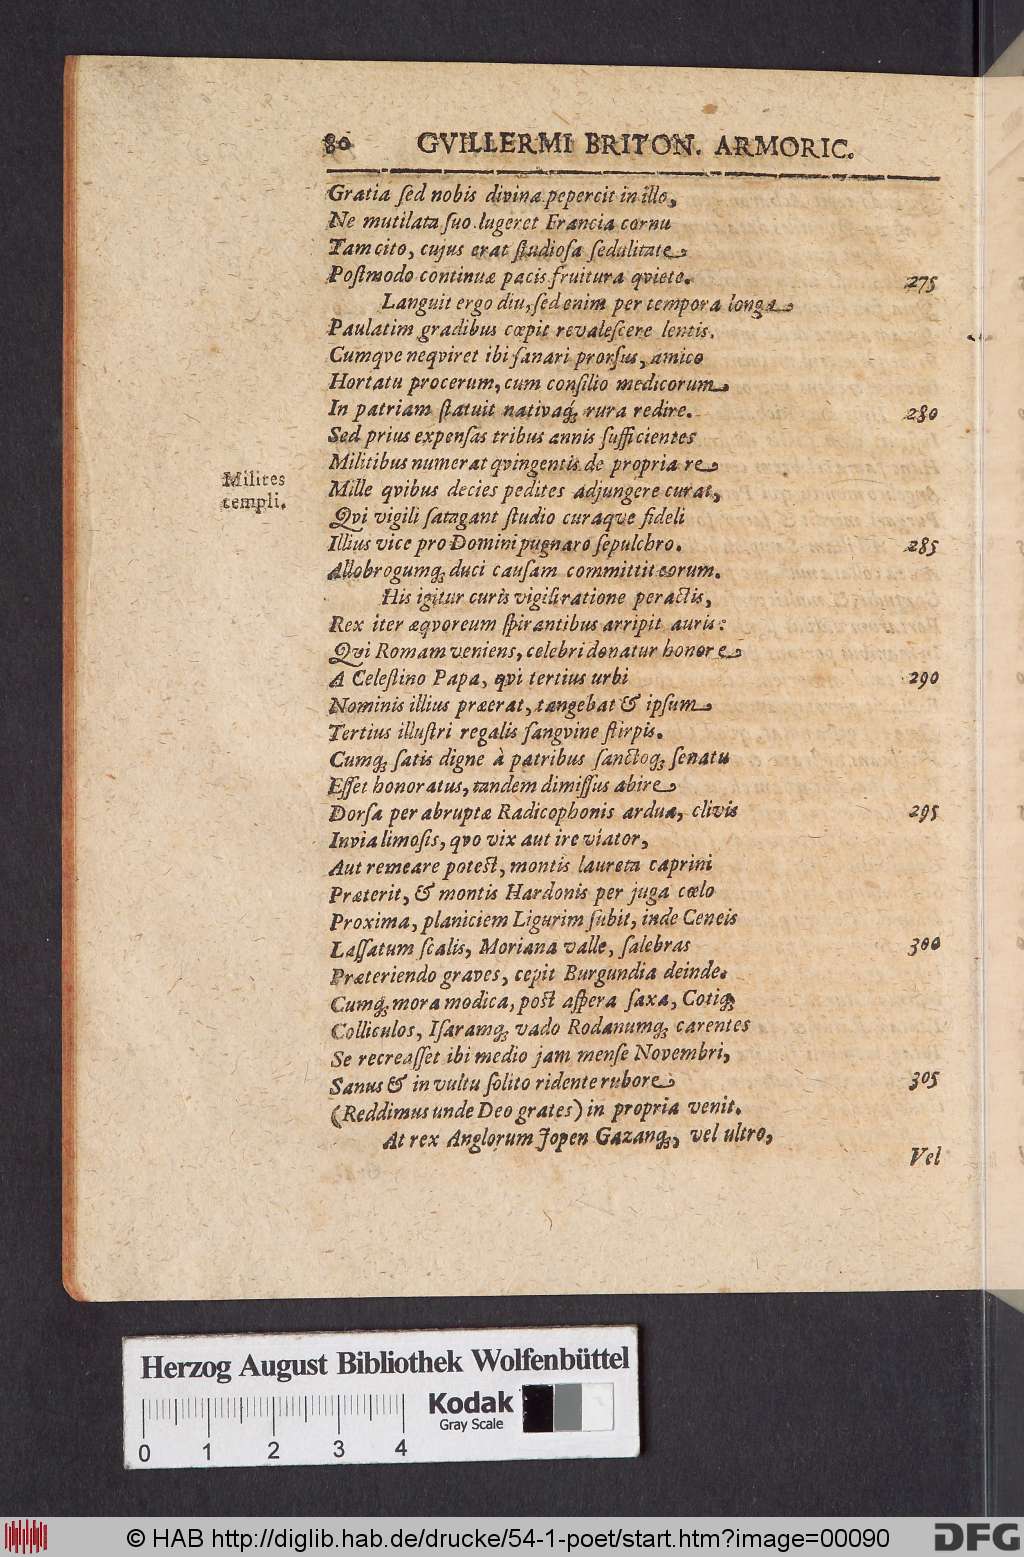 80 GVILLERMI BRITON. ARMORIC.
Gratia ſed nobis divina pepercit in illo,
Ne mutilata ſuo lugeret Francia cornu
Tam cito, cujus erat ſtudioſa ſedulitate
Poſtmodo continuæ pacis fruitura qviete. 275
Languit ergo diu, ſed enim per tempora longa
Paulatim gradibus cœpit revaleſcere lentis.
Cumqve neqviret ibi ſanari prorſus, amico
Hortatu procerum, cum conſilio medicorum
In patriam ſtatuit nativaq; rura redire. 280
Sed prius expenſas tribus annis ſufficientes
Militibus numerat qvingentis de propria re
Milites
templi.
Mille qvibus decies pedites adjungere curat,
Qvi vigili ſatagant ſtudio curaque fideli
Illius vice pro Domini pugnare ſepulchro. 285
Allobrogumq; duci cauſam committit eorum.
His igitur curis vigili ratione peractis,
Rex iter æqvoreum ſpirantibus arripit auris:
Qvi Romam veniens, celebri donatur honore
A Celeſtino Papa, qvi tertius urbi 290
Nominis illius præerat, tangebat & ipſum
Tertius illuſtri regalis ſangvine ſtirpis.
Cumq; ſatis digne à patribus ſanctoq; ſenatu
Eſſet honoratus, tandem dimiſſus abire
Dorſa per abruptæ Radicophonis ardua, clivis 295
Invia limoſis, qvo vix aut ire viator,
Aut remeare poteſt, montis laureta caprini
Præterit, & montis Hardonis per juga cœlo
Proxima, planiciem Ligurim ſubit, inde Ceneis
Laſſatum ſcalis, Moriana valle, ſalebras 300
Præteriendo graves, cepit Burgundia deinde.
Cumq; mora modica, poſt aſpera ſaxa, Cotiq;
Colliculos, Iſaramq; vado Rodanumq; carentes
Se recreaſſet ibi medio jam menſe Novembri,
Sanus & in vultu ſolito ridente rubore 305
(Reddimus unde Deo grates) in propria venit.
At rex Anglorum Jopen Gazanq;, vel ultro,
Vel
Herzog August Bibliothek Wolfenbüttel
Kodak
Gray Scale
0 1 2 3 4
© HAB http://diglib.hab.de/drucke/54-1-poet/start.htm?image=00090
DFG